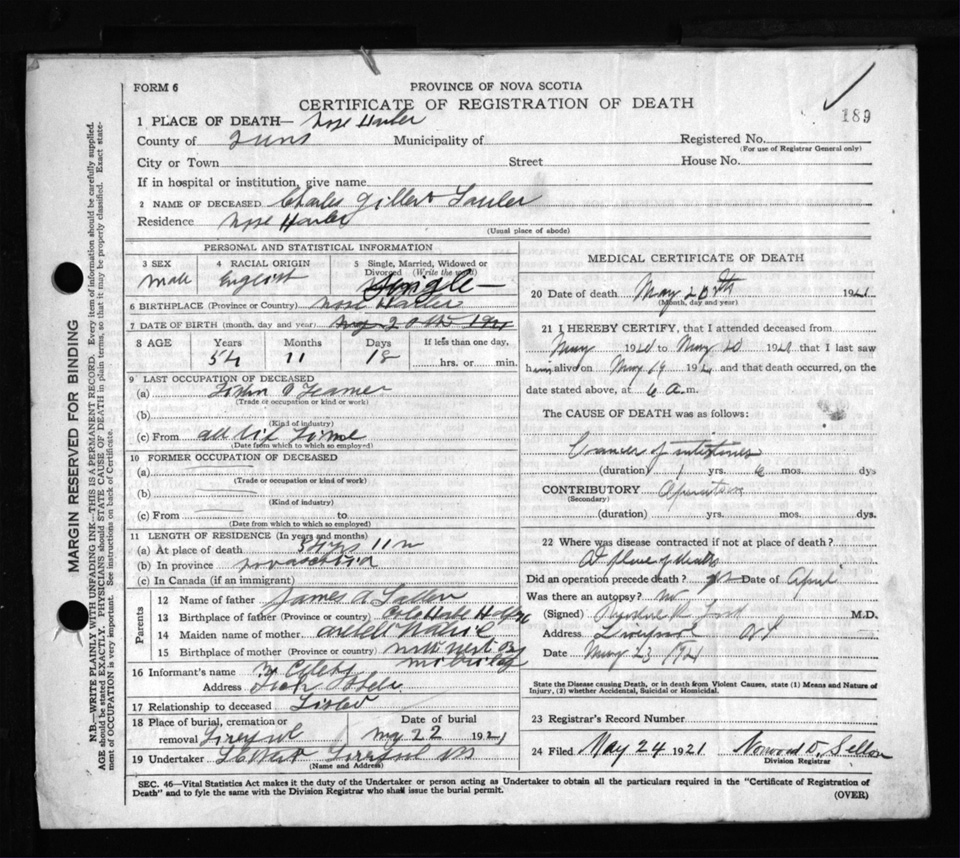 FORM 6
PROVINCE OF NOVA SCOTIA
CERTIFICATE OF REGISTRATION OF DEATH
189
1 PLACE OF DEATH—
County of Municipality of Registered No.
(For use of Registrar General only)
City or Town Street House No.
If in hospital or institution, give name
2 NAME OF DECEASED Charles Gilbert
Residence
(Usual place of abode)
PERSONAL AND STATISTICAL INFORMATION
3 SEX 4 RACIAL ORIGIN 5 Single, Married, Widowed or Divorced (Write the word)
male English Single
6 BIRTHPLACE (Province or Country)
7 DATE OF BIRTH (month, day and year)
8 AGE Years Months Days If less than one day,
54 11 18 hrs. or min.
9 LAST OCCUPATION OF DECEASED
(a)
(Trade or occupation or kind or work)
(b)
(Kind of industry)
(c) From all
(Date from which to which so employed)
10 FORMER OCCUPATION OF DECEASED
(a)
(Trade or occupation or kind of work)
(b)
(Kind of industry)
(c) From to
(Date from which to which so employed)
11 LENGTH OF RESIDENCE (In years and months)
(a) At place of death 54 yrs 11 m
(b) In province
(c) In Canada (if an immigrant)
Parents
12 Name of father James A
13 Birthplace of father (Province or country)
14 Maiden name of mother
15 Birthplace of mother (Province or country)
16 Informant's name
Address
17 Relationship to deceased Sister
18 Place of burial, cremation or removal Liverpool Date of burial May 22 1921
19 Undertaker Liverpool NS
(Name and Address)
MEDICAL CERTIFICATE OF DEATH
20 Date of death May 20th 1921
(Month, day and year)
21 I HEREBY CERTIFY, that I attended deceased from
May 1920 to May 20 1921 that I last saw
him alive on May 19 1921 and that death occurred, on the
date stated above, at 6 a.m.
The CAUSE OF DEATH was as follows:
Cancer of intestines
(duration) 1 yrs. 6 mos. dys
CONTRIBUTORY Operation
(Secondary)
(duration) yrs. mos. dys.
22 Where was disease contracted if not at place of death?
At place of death
Did an operation precede death? yes Date of April
Was there an autopsy? no
(Signed) M.D.
Address Liverpool NS
Date May 23 1921
State the Disease causing Death, or in death from Violent Causes, state (1) Means and Nature of
Injury, (2) whether Accidental, Suicidal or Homicidal.
23 Registrar's Record Number
24 Filed May 24 1921 Norwood D.
Division Registrar
SEC. 46—Vital Statistics Act makes it the duty of the Undertaker or person acting as Undertaker to obtain all the particulars required in the "Certificate of Registration of
Death" and to fyle the same with the Division Registrar who shall issue the burial permit.
(OVER)
MARGIN RESERVED FOR BINDING
N.B.—WRITE PLAINLY WITH UNFADING INK—THIS IS A PERMANENT RECORD. Every item of information should be carefully supplied.
AGE should be stated EXACTLY. PHYSICIANS should STATE CAUSE OF DEATH in plain terms, so that it may be properly classified. Exact state-
ment of OCCUPATION is very important. See instructions on back of Certificate.